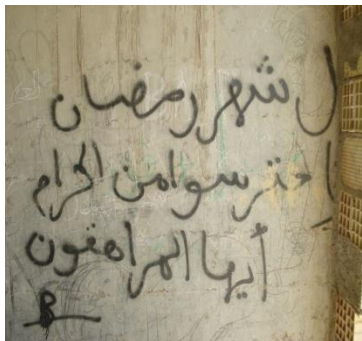 شهر رمضان
احترسوا من الحرام
أيها المراهقون
B